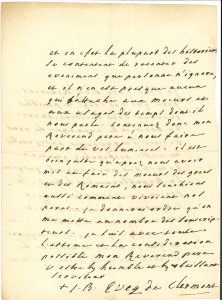 et en effet la plupart des historiens
se contentent de raconter des
evenements que personne n'ignore,
et il n'en est presque aucun
qui s'attache aux moeurs et
aux usages du temps dont il
nous parle. continuez donc mon
Reverend pere a nous faire
part de vos lumieres. il est
bien juste qu'apres nous avoir
mis au fait des moeurs des grecs
et des Romains, nous sachions
aussi comment vivoient nos
peres. je donnerai ordre qu'on
me mette au nombre des souscrip-
teurs. je suis avec toute
l'estime et la consideration
possible mon Reverend pere
votre tres humble et tres obeissant
serviteur
+ J. B. Eveq. de Clermont